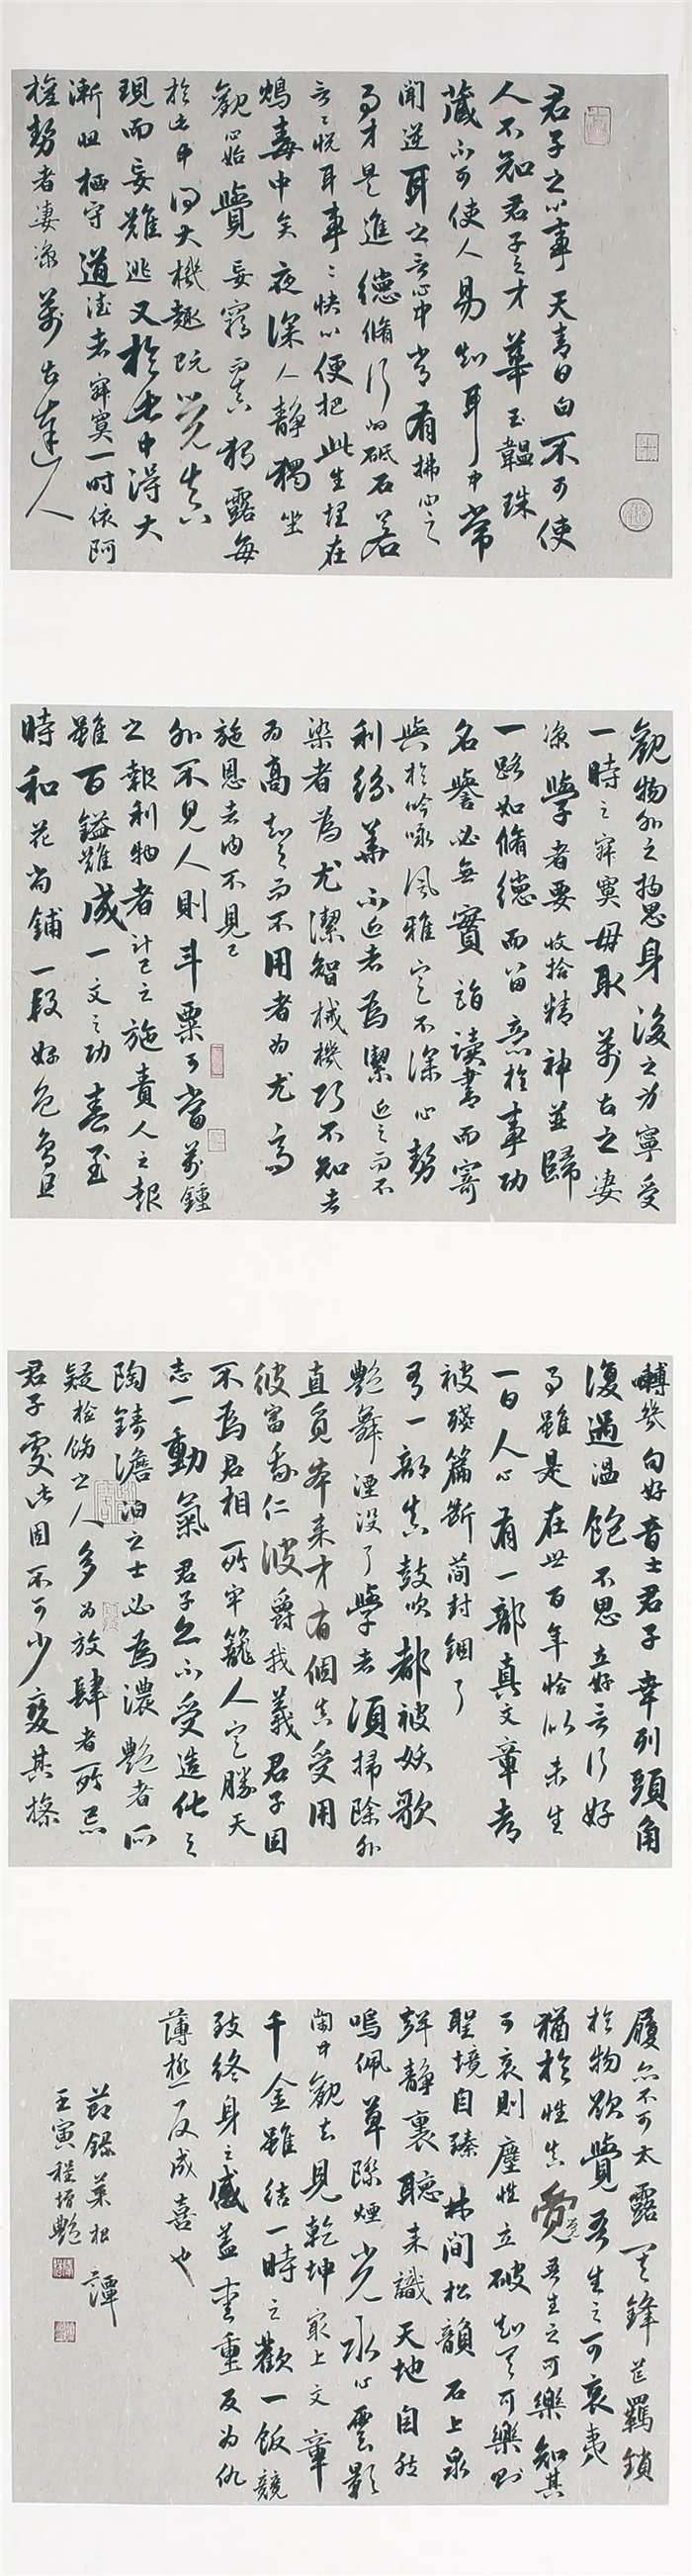 君子之心事天青日白不可使
人不知君子之才華玉韞珠
藏不可使人易知耳中常
聞逆耳之言心中常有拂心之
事才是進德脩行的砥石若
言言悦耳事事快心便把此生埋在
鴆毒中矣夜深人静獨坐
觀心始覺妄窮而真獨露每
於此中得大機趣既覺真
現而妄難逃又於此中得大
慚忸栖守道德者寂寞一時依阿
權勢者凄涼萬古達人
觀物外之物思身後之身寧受
一時之寂寞毋取萬古之凄
涼學者要收拾精神並歸
一路如脩德而留意於事功
名譽必無實詣讀書而寄
興於吟咏風雅定不深心勢
利紛華不近者為潔近之而不
染者為尤潔智械機巧不知者
為高知之而不用者為尤高
施恩者内不見己
外不見人則斗粟可當萬鍾
之報利物者計己之施責人之報
雖百鎰難成一文之功春至
時和花尚鋪一段好色鳥且
囀幾句好音士君子幸列頭角
復遇温飽不思立好言行好
事雖是在世百年恰似未生
一日人心有一部真文章都
被殘篇斷簡封錮了
有一部真鼓吹都被妖歌
艷舞湮没了學者須掃除外
直覓本來才有個真受用
彼富我仁彼爵我義君子固
不為君相所牢籠人定勝天
志一動氣君子亦不受造化之
陶鑄澹泊之士必為濃艷者所
疑檢飭之人多為放肆者所忌
君子處此固不可少變其操
履亦不可太露其鋒芒羈鎖
於物欲覺吾生之可哀夷
猶於性真覺吾生之可樂知其
可哀則塵情立破知其可樂則
聖境自臻林間松韻石上泉
聲静裏聽來識天地自然
鳴佩草際煙光水心雲影
閑中觀去見乾坤最上文章
千金難結一時之歡一飯競
致終身之感蓋愛重反為仇
薄極反成喜也
節録菜根譚
壬寅程培艷